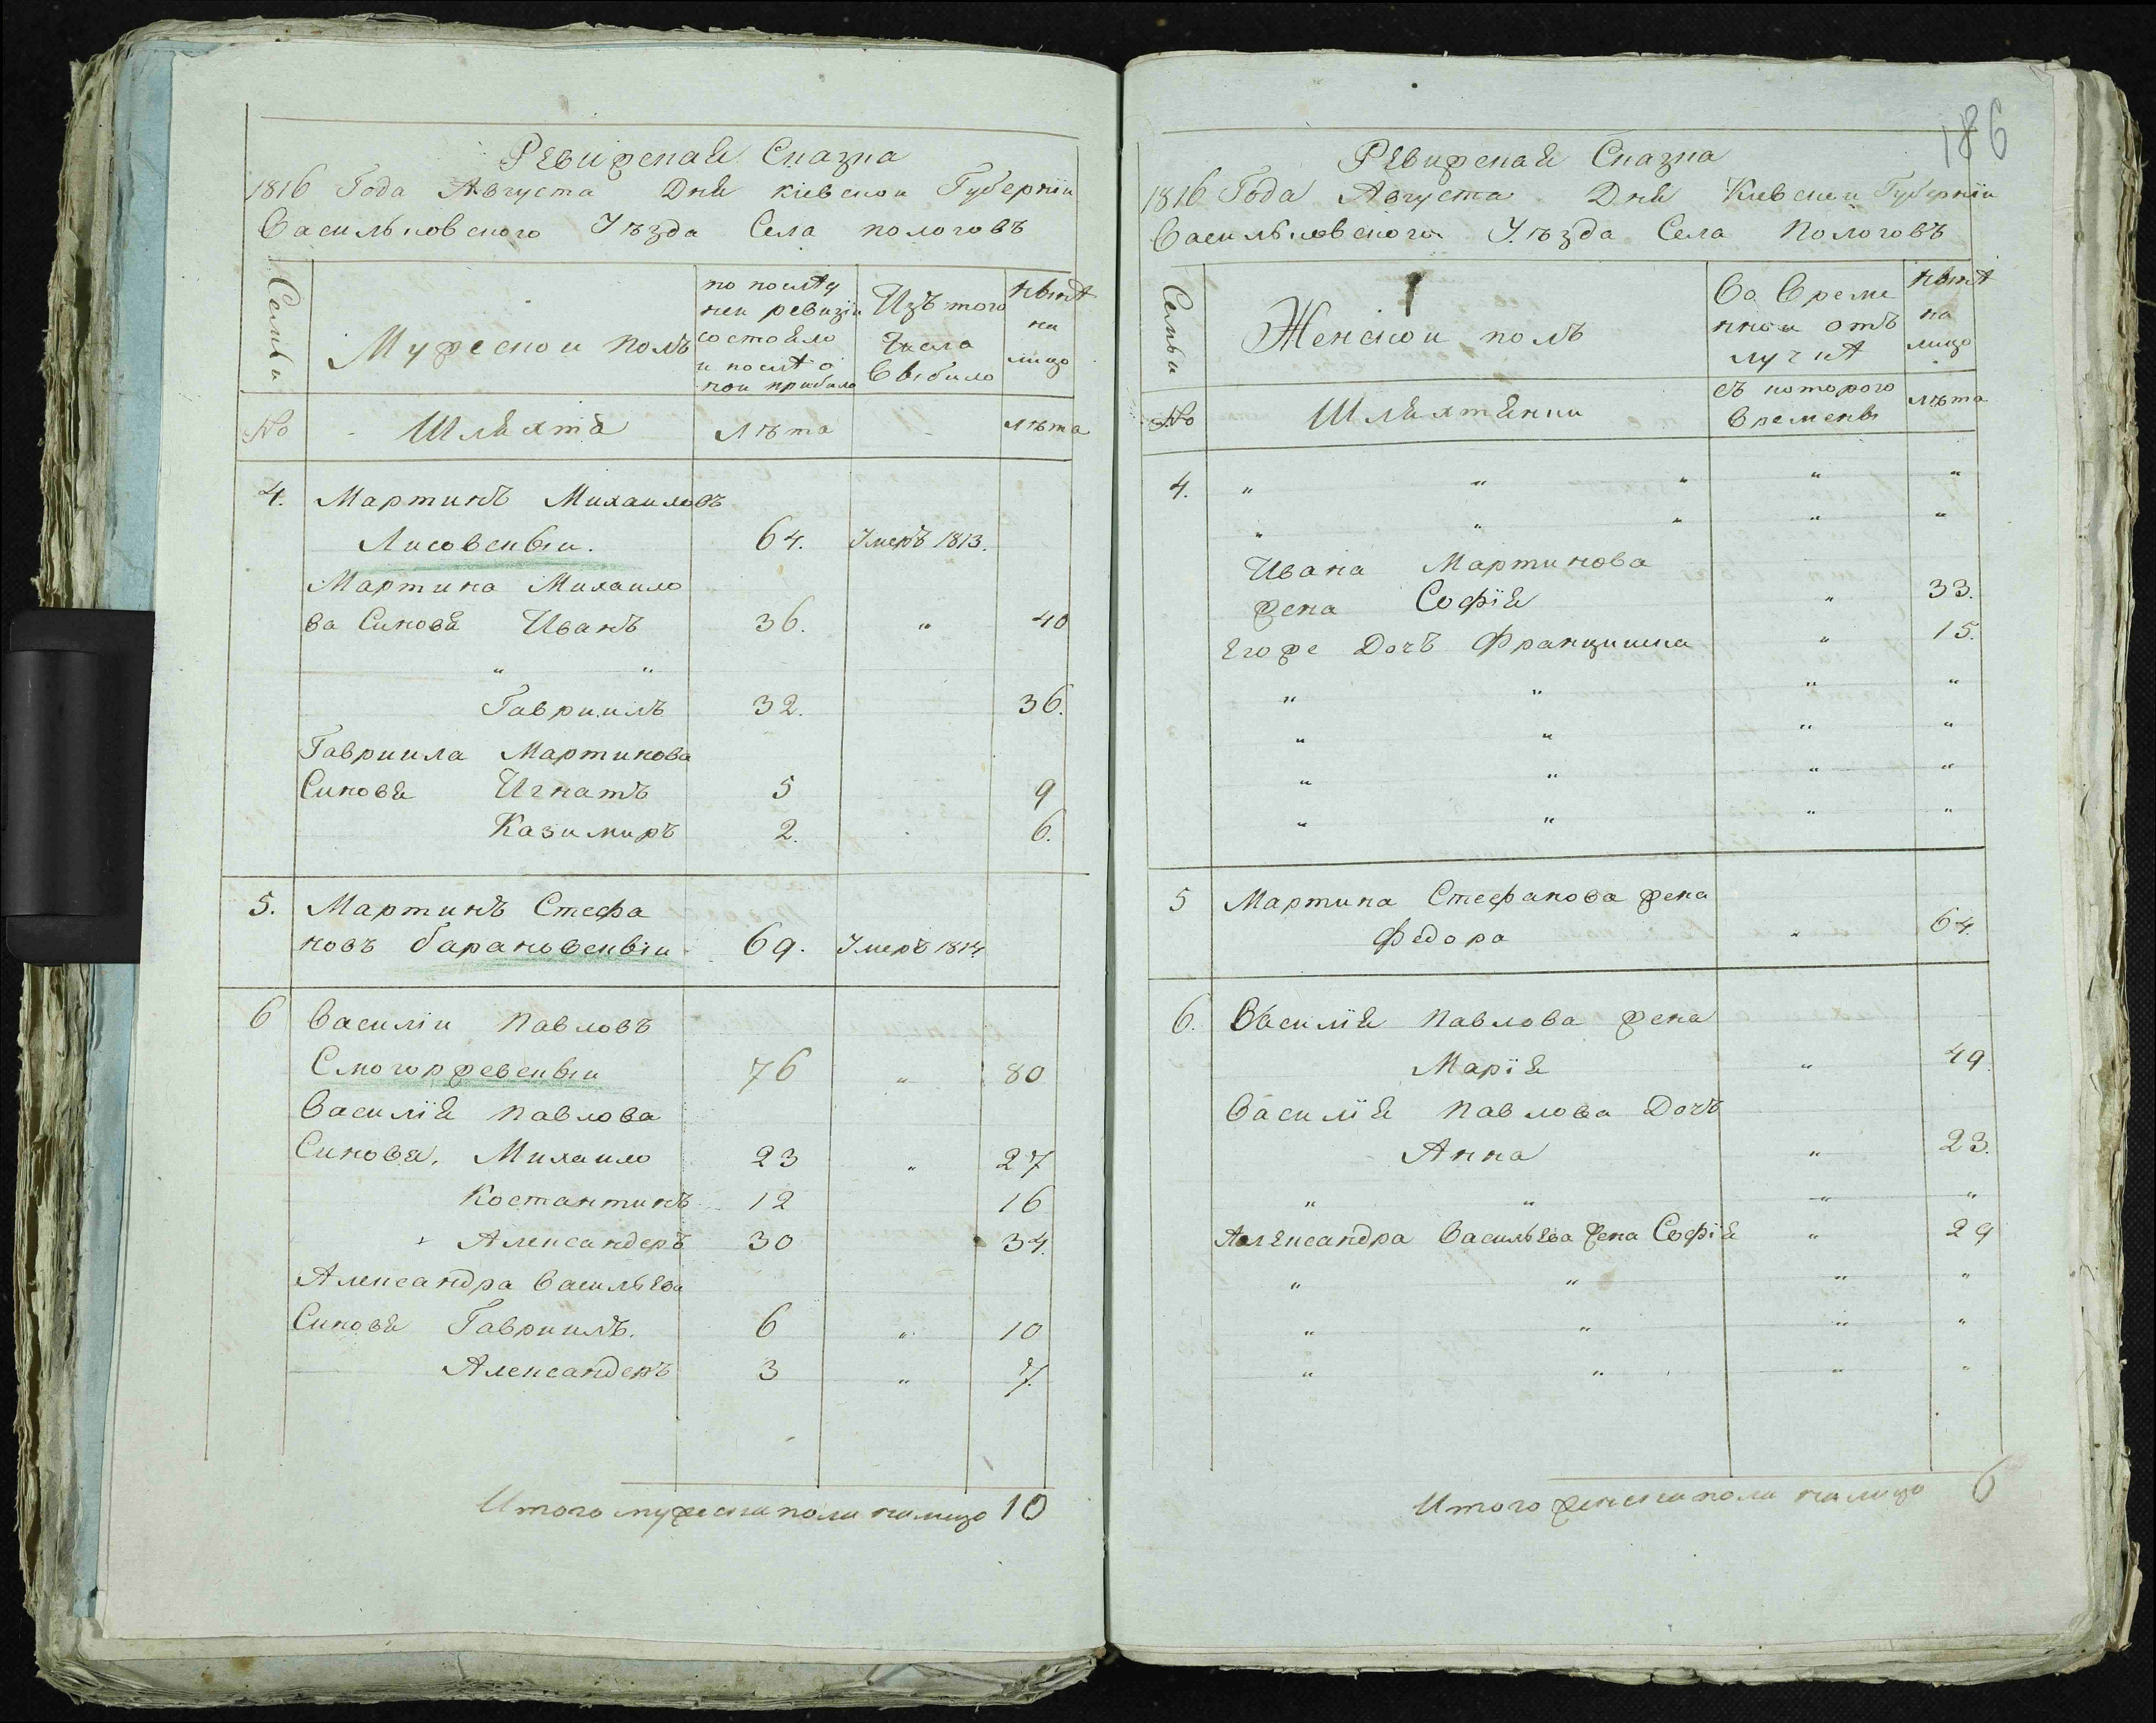 Ревизская Сказка
1816 Года Августа Дня киевской Губерніи
Васильковского Уѣзда Села пологовъ
Семьи
Мужеской полъ
по послѣд
ней ревизіи
состояло
и послѣ о
ной прибыло
Изъ того
Числа
Выбыло
Нынѣ
на
лицо
№
Шляхта
Лѣта
Лѣта
4. Мартинъ Михаиловъ
Лисовскый. 64. Умеръ 1813.
Мартина Михаило
ва Синовя Иванъ 36. " 40
" "
Гавриилъ 32. 36.
Гавриила Мартинова
Синовя Игнатъ 5 9
Казимиръ 2. 6.
5. Мартинъ Стефа
новъ барановскый 69. Умеръ 1814
6 Василій Павловъ
Смогоржевскый 76 " 80
Василія Павлова
Синовя, Михаило 23 " 27
Костантинъ 12 16
Александеръ 30 34.
Александра Васильева
Синовя Гавриилъ. 6 " 10
Александеръ 3 " 7.
Итого мужеска пола на лицо 10
186
Ревизская Сказка
1816 Года Августа Дня Киевской Губерніи
Васильковского Уѣзда Села Пологовъ
Семьи
Женской полъ
Во Време
нной отъ
лучкѣ
Нынѣ
на
лицо
№
Шляхтянки
съ которого
Времены
лѣта
4. " " " " "
" " " " "
Ивана Мартинова
жена Софія " 33.
Егоже Дочъ Францишка " 15.
" " " "
" " " "
" " " "
" " " "
5 Мартина Стефанова жена
Федора " 64.
6. Василія Павлова жена
Марія " 49.
Василія Павлова Дочъ
Анна " 23.
" " " "
Александра Васильева жена Софія " 29
" " " "
" " " "
" " " "
Итого женска пола на лицо 6